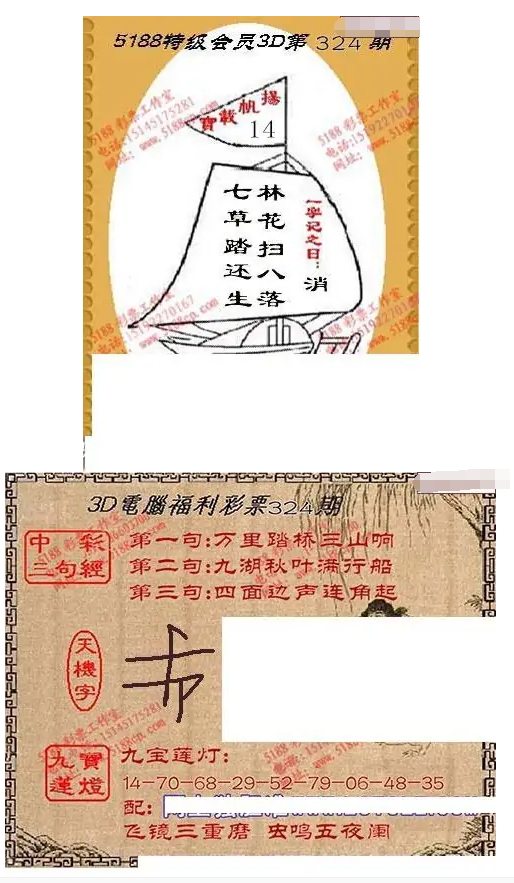 5188特级会员3D第324期
揚帆載寶
14
一字记之曰：消
林花扫八落
七草踏还生
5188 彩票工作室
电话:15145175281
5188 彩票工作室
3D電腦福利彩票324期
中彩三句經
第一句:万里踏桥三山响
第二句:九湖秋叶满行船
第三句:四面边声连角起
天機字
九寶蓮燈
九宝莲灯:
14-70-68-29-52-79-06-48-35
配:
飞镜三重磨 虫鸣五夜阑